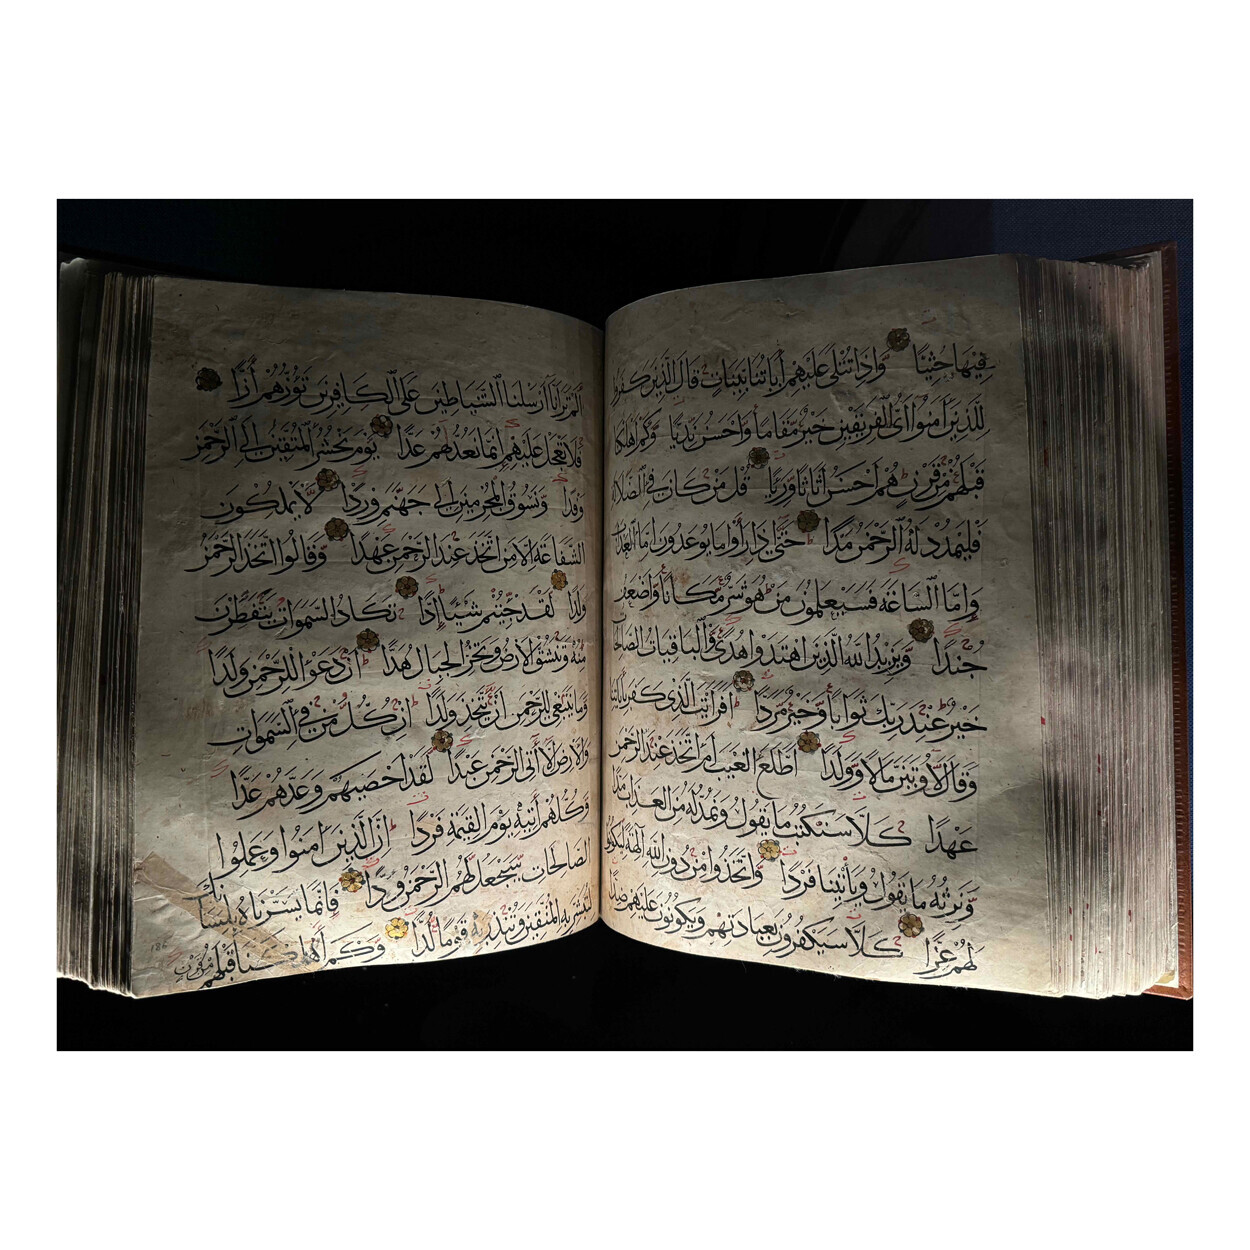 فِيهَا جُثِيًّا وَإِذَا تُتْلَى عَلَيْهِمْ آيَاتُنَا بَيِّنَاتٍ قَالَ الَّذِينَ كَفَرُوا
لِلَّذِينَ آمَنُوا أَيُّ الْفَرِيقَيْنِ خَيْرٌ مَّقَامًا وَأَحْسَنُ نَدِيًّا وَكَمْ أَهْلَكْنَا
قَبْلَهُم مِّن قَرْنٍ هُمْ أَحْسَنُ أَثَاثًا وَرِئْيًا قُلْ مَن كَانَ فِي الضَّلَالَةِ
فَلْيَمْدُدْ لَهُ الرَّحْمَنُ مَدًّا حَتَّى إِذَا رَأَوْا مَا يُوعَدُونَ إِمَّا الْعَذَابَ
وَإِمَّا السَّاعَةَ فَسَيَعْلَمُونَ مَنْ هُوَ شَرٌّ مَّكَانًا وَأَضْعَفُ
جُندًا وَيَزِيدُ اللَّهُ الَّذِينَ اهْتَدَوْا هُدًى وَالْبَاقِيَاتُ الصَّالِحَاتُ
خَيْرٌ عِندَ رَبِّكَ ثَوَابًا وَخَيْرٌ مَّرَدًّا أَفَرَأَيْتَ الَّذِي كَفَرَ بِآيَاتِنَا
وَقَالَ لَأُوتَيَنَّ مَالًا وَوَلَدًا أَطَّلَعَ الْغَيْبَ أَمِ اتَّخَذَ عِندَ الرَّحْمَنِ
عَهْدًا كَلَّا سَنَكْتُبُ مَا يَقُولُ وَنَمُدُّ لَهُ مِنَ الْعَذَابِ مَدًّا
وَنَرِثُهُ مَا يَقُولُ وَيَأْتِينَا فَرْدًا وَاتَّخَذُوا مِن دُونِ اللَّهِ آلِهَةً لِّيَكُونُوا
لَهُمْ عِزًّا كَلَّا سَيَكْفُرُونَ بِعِبَادَتِهِمْ وَيَكُونُونَ عَلَيْهِمْ ضِدًّا
أَلَمْ تَرَ أَنَّا أَرْسَلْنَا الشَّيَاطِينَ عَلَى الْكَافِرِينَ تَؤُزُّهُمْ أَزًّا
فَلَا تَعْجَلْ عَلَيْهِمْ إِنَّمَا نَعُدُّ لَهُمْ عَدًّا يَوْمَ نَحْشُرُ الْمُتَّقِينَ إِلَى الرَّحْمَنِ
وَفْدًا وَنَسُوقُ الْمُجْرِمِينَ إِلَى جَهَنَّمَ وِرْدًا لَّا يَمْلِكُونَ
الشَّفَاعَةَ إِلَّا مَنِ اتَّخَذَ عِندَ الرَّحْمَنِ عَهْدًا وَقَالُوا اتَّخَذَ الرَّحْمَنُ
وَلَدًا لَقَدْ جِئْتُمْ شَيْئًا إِدًّا تَكَادُ السَّمَوَاتُ يَتَفَطَّرْنَ
مِنْهُ وَتَنشَقُّ الْأَرْضُ وَتَخِرُّ الْجِبَالُ هَدًّا أَن دَعَوْا لِلرَّحْمَنِ وَلَدًا
وَمَا يَنبَغِي لِلرَّحْمَنِ أَن يَتَّخِذَ وَلَدًا إِن كُلُّ مَن فِي السَّمَوَاتِ
وَالْأَرْضِ إِلَّا آتِي الرَّحْمَنِ عَبْدًا لَقَدْ أَحْصَيهُمْ وَعَدَّهُمْ عَدًّا
وَكُلُّهُمْ آتِيهِ يَوْمَ الْقِيمَةِ فَرْدًا إِنَّ الَّذِينَ آمَنُوا وَعَمِلُوا
الصَّالِحَاتِ سَيَجْعَلُ لَهُمُ الرَّحْمَنُ وُدًّا فَإِنَّمَا يَسَّرْنَاهُ بِلِسَانِكَ
لِتُبَشِّرَ بِهِ الْمُتَّقِينَ وَتُنذِرَ بِهِ قَوْمًا لُّدًّا وَكَمْ أَهْلَكْنَا قَبْلَهُم مِّن قَرْنٍ
186